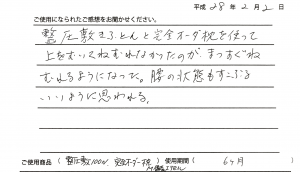 平成 28 年 2 月 2 日
ご使用になられたご感想をお聞かせください。
整圧敷きふとんと完全オーダ枕を使って
上をむいてねむれなかったのが、まっすぐね
むれるようになった。腰の状態もすこぶる
いいように思われる。
ご使用商品 ( 整圧敷100N 完全オーダー枕 ) 使用期間 ( 6ヶ月 )